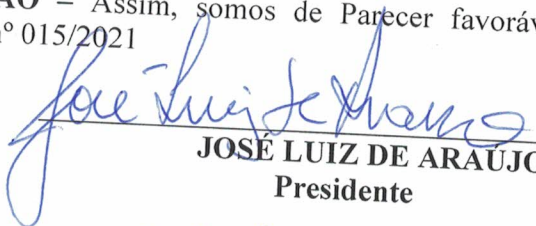 ÃO – Assim, somos de Parecer favoráv
nº 015/2021
José Luiz de Araujo
JOSÉ LUIZ DE ARAÚJO
Presidente